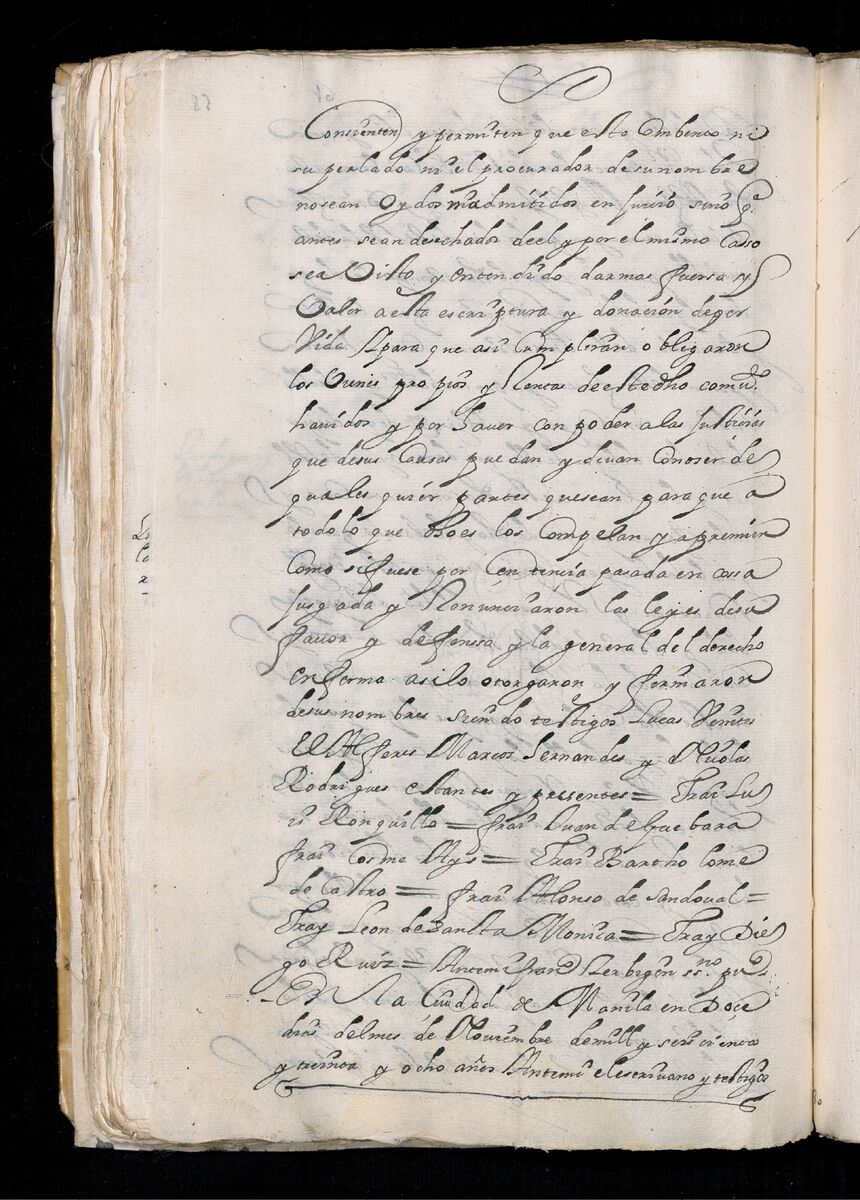 Consienten y permiten que este Combento ni
su perlado ni el procurador de su nombre
no sean Oydos ni admitidos en Juicio sino q.e
antes sean desechados de el y por el mismo Casso
sea Visto y entendido dar mas fuersa y
Valor a esta escriptura y donación de por
Vida Y para que asi Cumpleran obligaron
los Vienes propios y Rentas de este dho comu.to
hauidos y por hauer con poder a las Justicias
que de sus Causas puedan y deuan Conoser de
quales quier partes que sean para que a
todo lo que dho es los Compelan y apremien
Como si fuese por Sentencia pasada en cossa
Jusgada y Renunciaron las leyes de su
fauor y defenssa y la general del derecho
en forma asi lo otorgaron y fermaron
de sus nombres siendo testigos Lucas Venites
El Alferes Marcos Fernandes y Nicolas
Rodrigues estantes y presentes = Frai Lu
is Ronquillo = frai Juan de Guebara
frai Cosme = Frai Bartholome
de Castro = frai Alonso de Sandoval =
Fray Leon de Santa Monica = Fray Die
go Ruiz = Antemi ss.no pu.co
En la Ciudad de Manila en Doce
dias del mes de Nouiembre de mill y seis cientos
y treinta y ocho años Antemi el escriuano y testigos